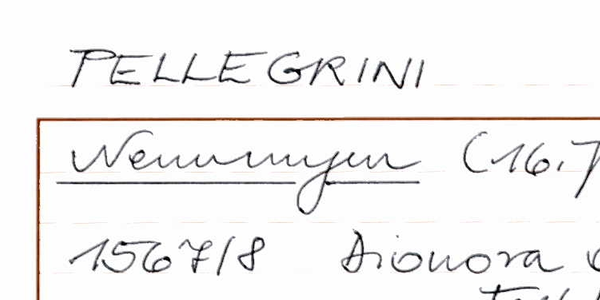 PELLEGRINI
Nenningen (16.7
1567/8 Dionora